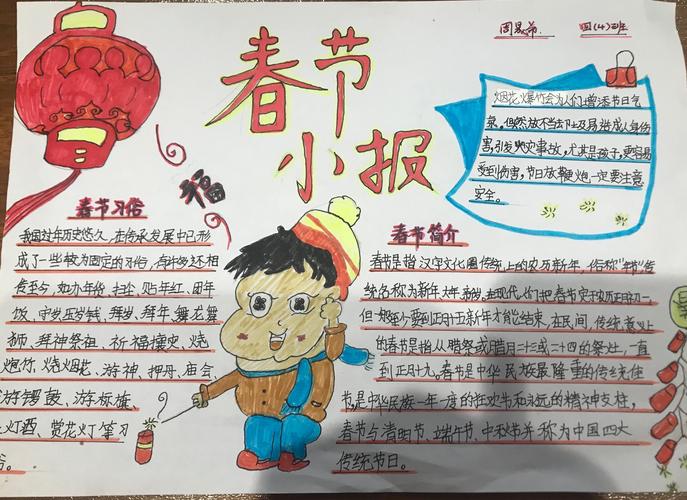 春节
小报
四(4)班
烟花爆竹会为人们增添节日气
氛。但燃放不当却极易造成人身伤
害,引发火灾事故,尤其是孩子,更容易
受到伤害,节日放鞭炮一定要注意
安全。
福
春节习俗
我国过年历史悠久,在传承发展中已形
成了一些较为固定的习俗,有许多还相
传至今,如办年货、扫尘、贴年红、团年
饭、守岁压岁钱、拜岁、拜年、舞龙舞
狮、拜神祭祖、祈福攘灾、烧
炮竹、烧烟花、游神、押舟、庙会
游锣鼓、游标旗、
灯酒、赏花灯等习
俗。
春节简介
春节是指汉字文化圈传统上的农历新年,俗称"年节"传
统名称为新年、大年、新岁,在现代,人们把春节定于农历正月初一
但一般至少要到正月十五新年才能结束,在民间,传统意义上
的春节是指从腊祭或腊月二十三或二十四的祭灶,一直
到正月十九。春节是中华民族最隆重的传统佳
节,是中华民族一年一度的狂欢节和永远的精神支柱,
春节与清明节、端午节、中秋节并称为中国四大
传统节日。